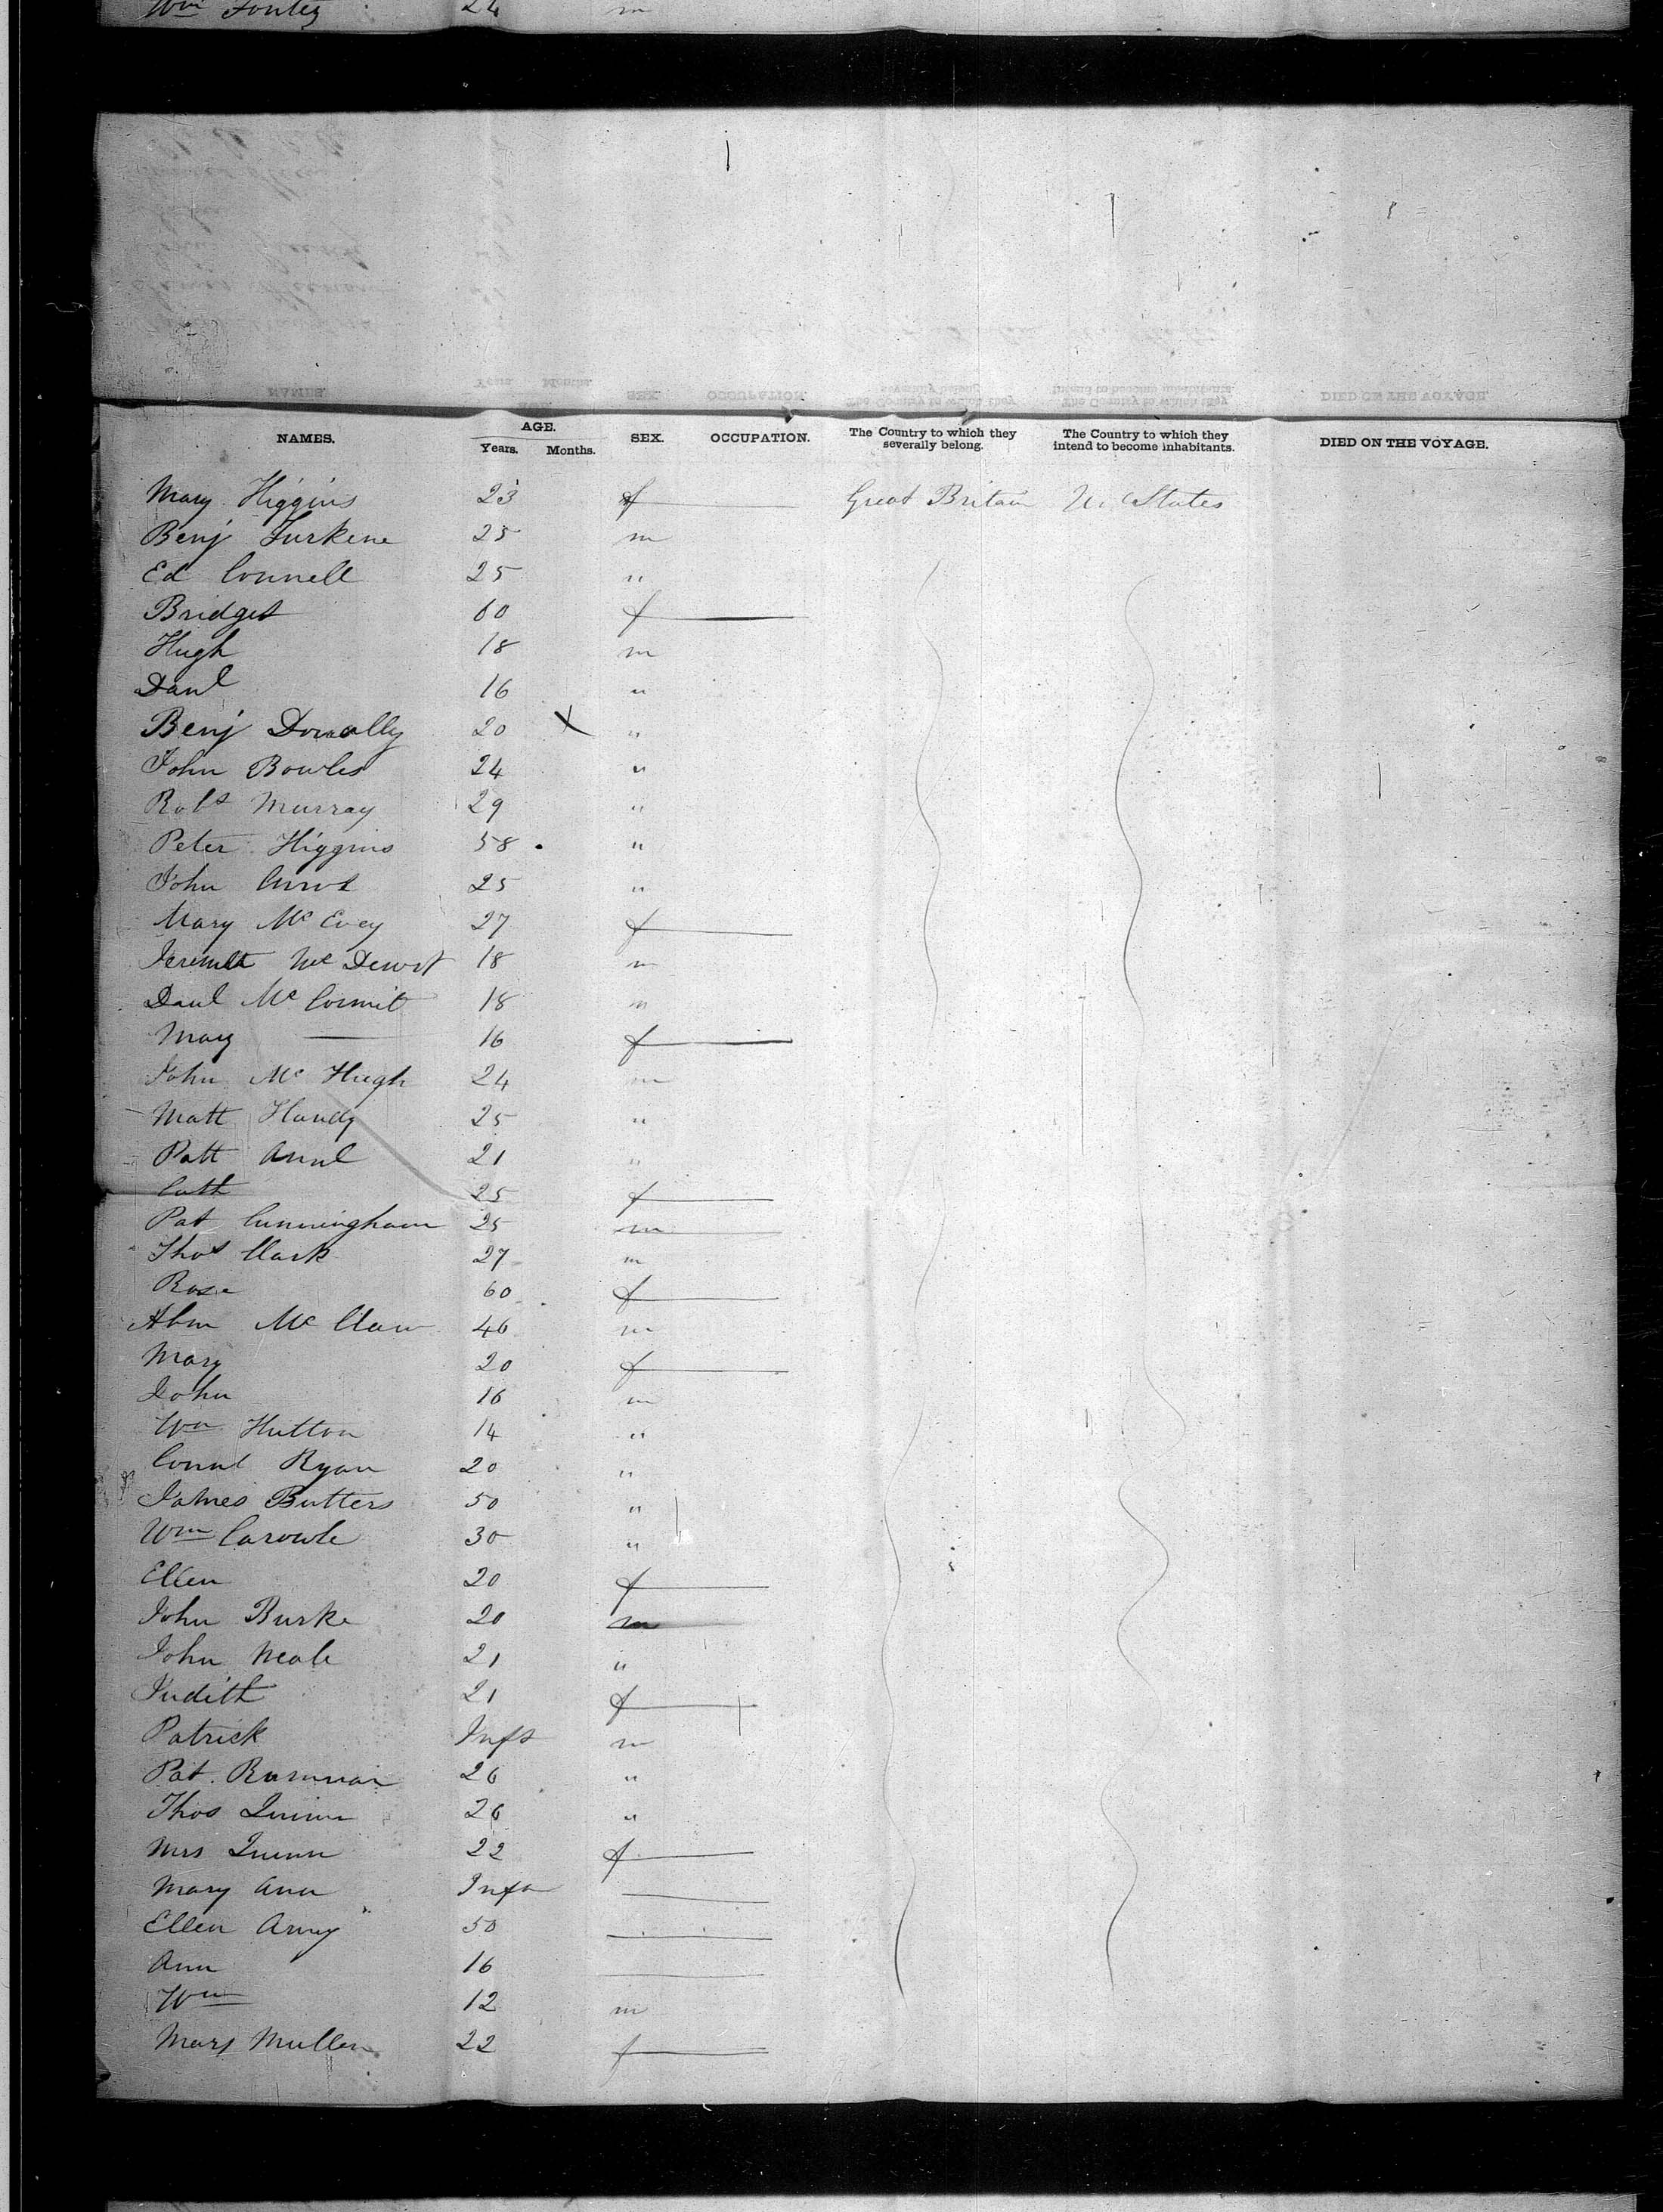 Wm 24 m
NAMES. AGE. Years. Months. SEX. OCCUPATION. The Country to which they severally belong. The Country to which they intend to become inhabitants. DIED ON THE VOYAGE.
Mary Higgins 23 f Great Britain U. States
Benj 25 m
Ed Connell 25 "
Bridget 60 f
Hugh 18 m
Danl 16 "
Benj Donolly 20 X "
John Bowles 24 "
Robt Murray 29 "
Peter Higgins 58 "
John 25 "
Mary Mc Evey 27 f
Mc 18 m
Danl Mc Cormit 18 m
Mary — 16 f
John Mc Hugh 24 m
Matt Handy 25 "
Patt 21 "
Cath 25 f
Pat Cunningham 25 m
Thos Clark 27 m
Rose 60 f
Abm Mc 46 m
Mary 20 f
John 16 m
Wm Hutton 14 "
Ryan 20 "
James Butters 50 "
Wm 30 "
Ellen 20 f
John Burke 20 m
John Neale 21 "
Judith 21 f
Patrick Inft m
Pat. 26 "
Thos Quinn 26 "
Mrs Quinn 22 f
Mary Ann Inft
Ellen 50
Ann 16
Wm 12 m
Mary Mullen 22 f